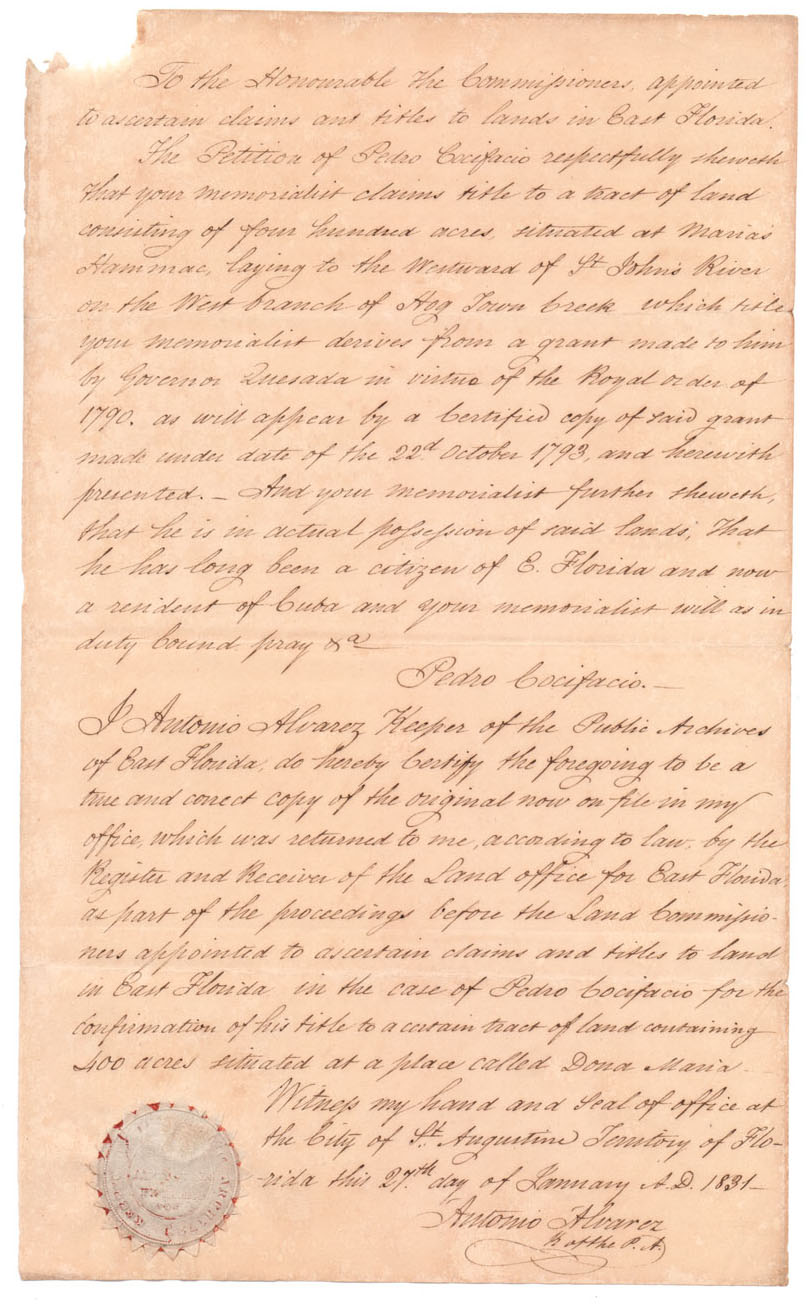 To the Honourable the Commissioners, appointed
to ascertain claims ant titles to lands in East Florida.
The Petition of Pedro Cocifacio respectfully sheweth
that your memorialist claims title to a tract of land
consisting of four hundred acres, situated at Maria's
Hammac, laying to the Westward of St. John's River
on the West branch of Hog Town Creek which title
your memorialist derives from a grant made to him
by Governor Quesada in virtue of the Royal order of
1790. as will appear by a Certified copy of said grant
made under date of the 22d. October 1793, and herewith
presented. — And your memorialist further sheweth,
that he is in actual possession of said lands, that
he has long been a citizen of E. Florida and now
a resident of Cuba and your memorialist will as in
duty bound pray &a
Pedro Cocifacio. —
I Antonio Alvarez Keeper of the Public Archives
of East Florida, do hereby Certify the foregoing to be a
true and correct copy of the original now on file in my
office, which was returned to me, according to law, by the
Register and Receiver of the Land office for East Florida,
as part of the proceedings before the Land Commissio-
ners appointed to ascertain claims and titles to land
in East Florida in the case of Pedro Cocifacio for the
Confirmation of his title to a certain tract of land containing
400 acres situated at a place called Dona Maria —
Witness my hand and Seal of office at
the City of St. Augustine Territory of Flo-
-rida this 27.th day of January A.D. 1831 —
Antonio Alvarez
K of the P. A.